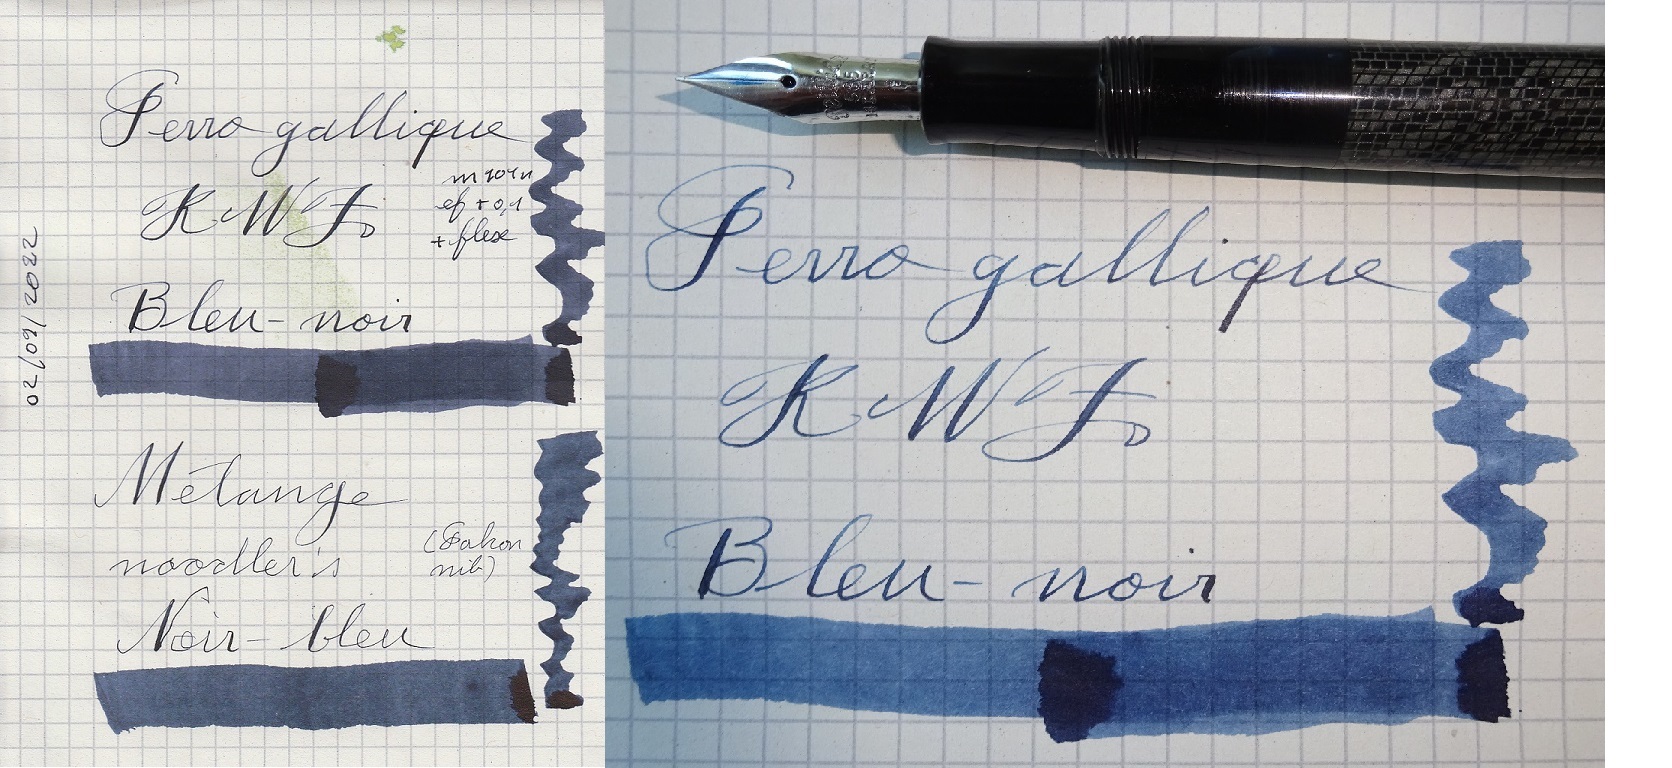 Ferro gallique
KWF
m 101n
ef + 0,1
+ flex
Bleu-noir
02/09/2022
Mélange
noodler's
(Falcon
nib)
Noir-bleu
Ferro gallique
KWF
Bleu-noir